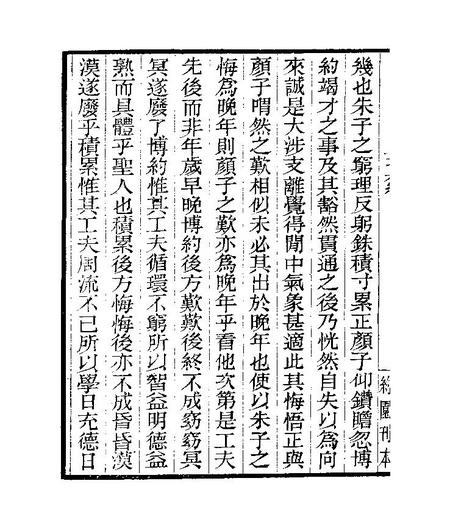 幾也朱子之窮理反躬銖積寸累正顏子仰鑽瞻忽博
約竭才之事及其豁然貫通之後乃恍然自失以為向
來誠是大涉支離覺得閒中氣象甚適此其悔悟正與
顏子喟然之歎相似未必其出於晚年也使以朱子之
悔為晚年則顏子之歎亦為晚年乎看他次第是工夫
先後而非年歲早晚博約後方歎歎後終不成窈窈冥
冥遂廢了博約惟其工夫循環不窮所以智益明德益
熟而具體乎聖人也積累後方悔悔後亦不成昏昏漠
漠遂廢乎積累惟其工夫周流不已所以學日充德日